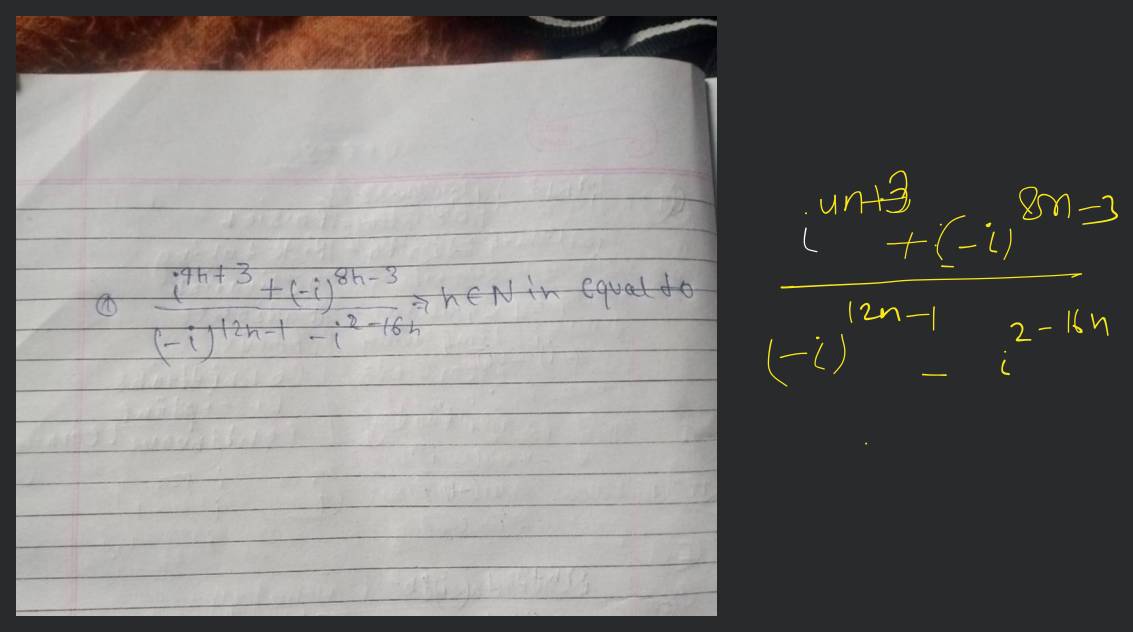 ① i^4n+3 + (-i)^8n-3
(-i)^12n-1 - i^2-16n ; n ∈ N in equal to
i^4n+3 + (-i)^8n-3
(-i)^12n-1 - i^2-16n